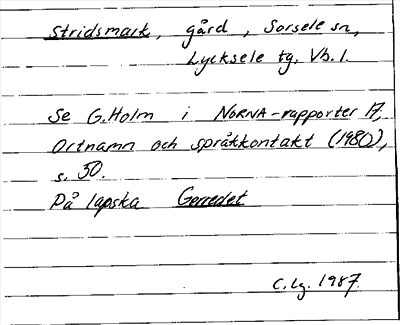 Stridsmark, gård, Sorsele sn,
Lycksele tg. Vb. l.
Se G. Holm i NORNA-rapporter 17,
Ortnamn och språkkontakt (1980),
s. 50.
På lapska Gerredet
C. Lg. 1987.